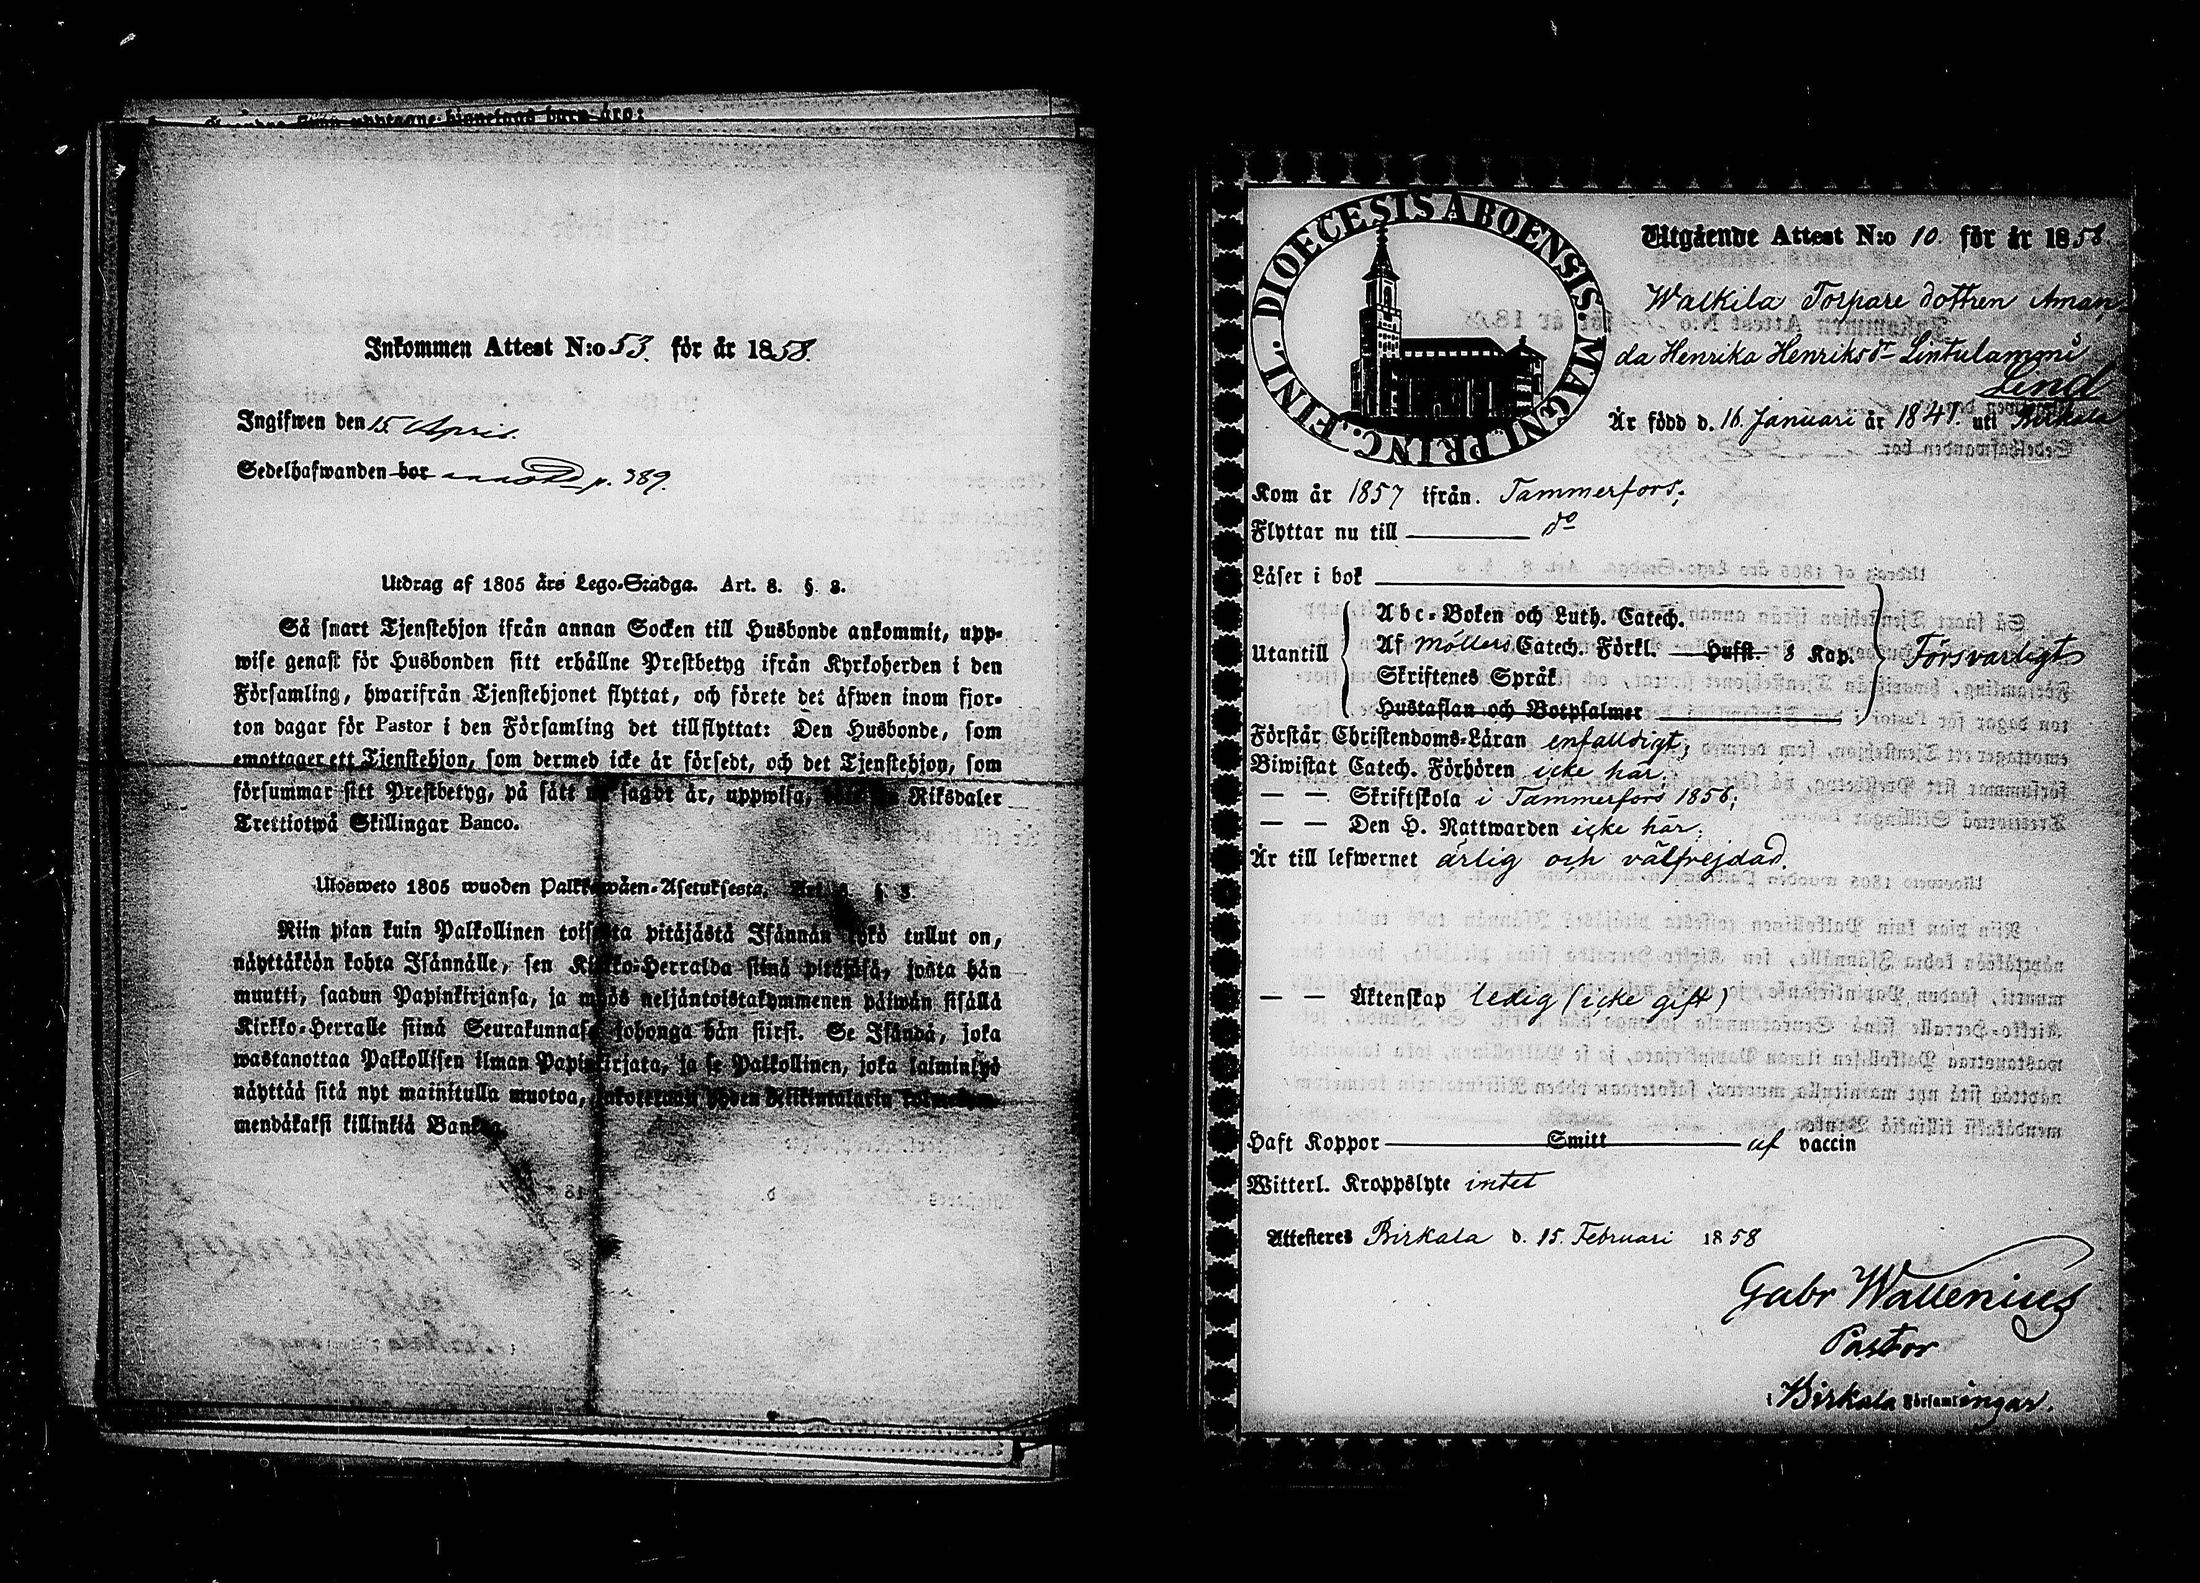 Inkommen Attest N:o 53. för år 1858.
Ingifwen den 15. April.
Sedelhafwanden bor p. 389.
Utdrag af 1805 års Lego-Stadga. Art. 8. §. 8.
Så snart Tjenstehjon ifrån annan Socken till Husbonde ankommit, upp-
wise genast för Husbonden sitt erhållne Prestbetyg ifrån Kyrkoherden i den
Församling, hwarifrån Tjenstehjonet flyttat, och förete det äfwen inom fjor-
ton dagar för Pastor i den Församling det tillflyttat: Den Husbonde, som
emottager ett Tjenstehjon, som dermed icke är försedt, och det Tjenstehjon, som
försummar sitt Prestbetyg, på sätt nu sagdt är, uppwisa, Riksdaler
Trettiotwå Skillingar Banco.
Ulosweto 1805 wuoden Palkkawäen-Asetuksesta. Art. 8. § 8.
Niin pian kuin Palkollinen toisesta pitäjästä Isännän tykö tullut on,
näyttäköön kohta Isännälle, sen Kirkko-Herralda siinä pitäjäsä, josta hän
muutti, saadun Papinkirjansa, ja myös neljäntoistakymmenen päiwän sisällä
Kirkko-Herralle siinä Seurakunnasa johonga hän siirsi. Se Isändä, joka
wastanottaa Palkollisen ilman Papinkirjata, ja se Palkollinen, joka laiminlyö
näyttää sitä nyt mainitulla muotoa, sakotetaan yhden Riikintalarin kolmekym-
mendäkaksi killinkiä Bankoa.
DIOECESIS ABOENSIS. MAGNI PRINC. FINL.
Utgående Attest N:o 10. för år 1858.
Walkila Torpare dottren Aman-
da Henrika Henriksdr Lintulammi
Lind
Är född d. 16. Januari år 1841. uti Birkala
Kom år 1857 ifrån. Tammerfors;
Flyttar nu till do
Läser i bok
Utantill
Abc-Boken och Luth. Catech.
Af Möllers Catech. Förkl. Hufst. 8 Kap.
Skriftenes Språk
Hustaflan och Botpsalmer
Försvarligt
Förstår Christendoms-Läran enfalldigt;
Biwistat Catech. Förhören icke här.
— — Skriftskola i Tammerfors 1856;
— — Den H. Nattwarden icke här;
Är till lefwernet ärlig och välfrejdad.
— — Äktenskap ledig (icke gift)
Haft Koppor Smitt af vaccin
Witterl. Kroppslyte intet
Attesteres Birkala d. 15. Februari 1858
Gabr Wallenius
Pastor
i Birkala Församlingar.